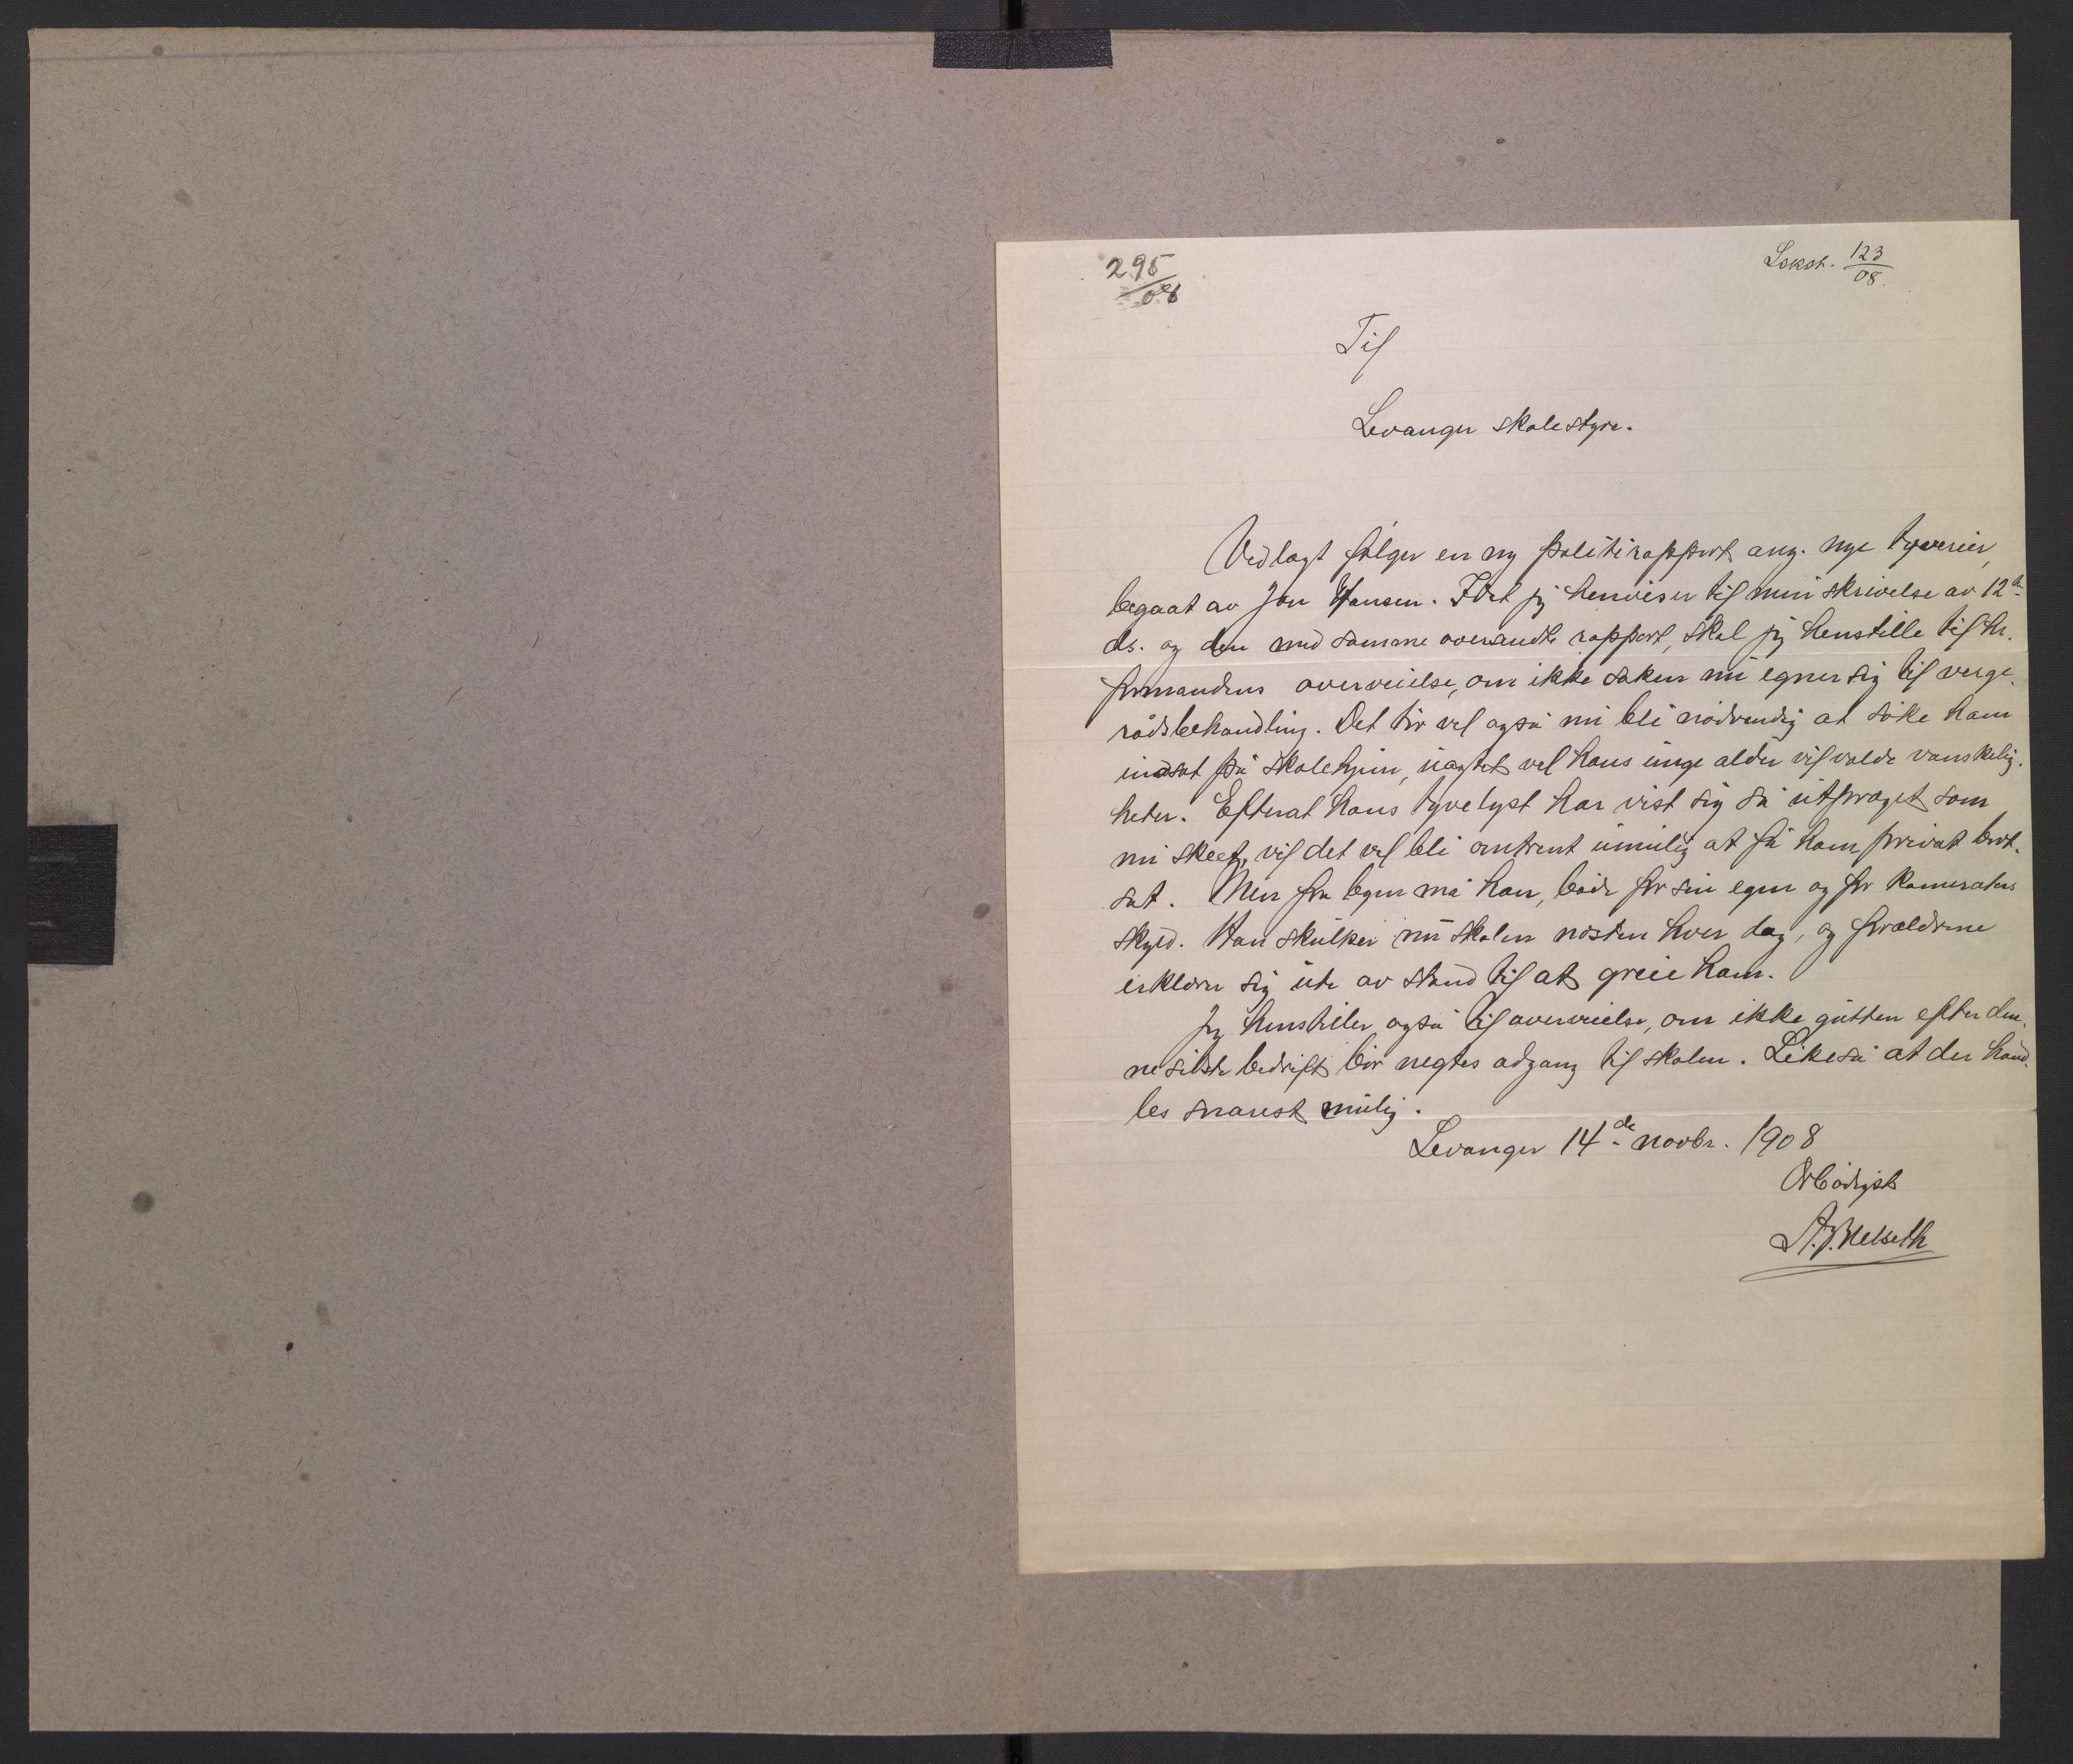 295/08
Lskst. 123/08.
Til
Levanger skolestyre.
Vedlagt følger en ny politirapport ang. nye tyverier,
begaat av Jon Hansen. Idet jeg henviser til min skrivelse av 12te
ds. og den med samme oversendte rapport, skal jeg henstille til hr.
formandens overveielse, om ikke saken nu egner sig til verge-
rådsbehandling. Det tør vel også nu bli nødvendig at søke ham
indsat på skolehjem, uagtet vel hans unge alder vil volde vanskelig-
heter. Efterat hans tyvelyst har vist sig så utpræget som
nu skeet, vil det vel bli omtrent umulig at få ham privat bort-
sat. Men fra byen må han, både for sin egen og for kameraters
skyld. Han skulker nu skolen næsten hver dag, og forældrene
erklærer sig ute av stand til at greie ham.
Jeg henstiller også til overveielse, om ikke gutten efter den-
ne siste bedrift bør negtes adgang til skolen. Likeså at der hand-
les snarest mulig.
Levanger 14de novbr. 1908
Ærbødigst
A. J. Melseth